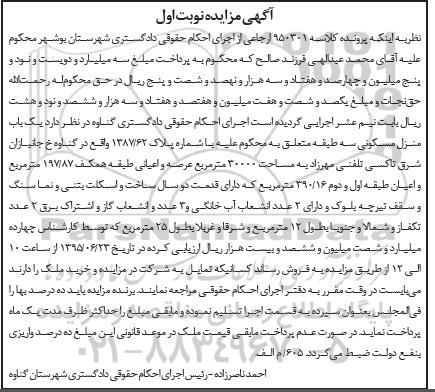 آگهی مزایده نوبت اول
نظربه اینکه پرونده کلاسه ۹۵۰۳۰۱ ارجاعی از اجرای احکام حقوقی دادگستری شهرستان بوشهر محکوم
علیه آقای محمد عبدالهی فرزند صالح که محکوم به پرداخت مبلغ سه میلیارد و دویست و نود و
پنج میلیون و چهارصد و هفتاد و سه هزار و نهصد و شصت و پنج ریال در حق محکوم‌له رحمت‌الله
حق‌نجات و مبلغ یکصد و شصت و هفت میلیون و هفتصد و هفتاد و سه هزار و ششصد و نود و هشت
ریال بابت نیم عشر اجرایی گردیده است اجرای احکام حقوقی دادگستری گناوه در نظر دارد یک باب
منزل مسکونی سه طبقه متعلق به محکوم علیه با شماره پلاک ۱۳۸۷/۶۲ واقع در گناوه خ جانبازان
شرق تاکسی تلفنی مهرزاد به مساحت ۳۰۰۰۰ مترمربع عرصه و اعیانی طبقه همکف ۱۹۷/۸۷ مترمربع
و اعیان طبقه اول و دوم ۳۹۰/۱۶ مترمربع که دارای قدمت دو سال ساخت و اسکلت بتنی و نما سنگ
و سقف تیرچه بلوک و دارای ۲ عدد انشعاب آب خانگی و ۳ عدد و انشعاب گاز و اشتراک برق ۲ عدد
تکفاز و شمالا و جنوبا بطول ۱۲ مترمربع و شرقا و غربا بطول ۲۵ مترمربع که توسط کارشناس چهارده
میلیارد و شصت میلیون و ششصد و بیست هزار ریال ارزیابی کرده در تاریخ ۱۳۹۵/۰۶/۲۳ از ساعت ۱۰
الی ۱۲ از طریق مزایده به فروش رساند کسانیکه تمایل به شرکت در مزایده و خرید ملک را دارند
می‌بایست در وقت مقرر به دفتر اجرای احکام حقوقی مراجعه نمایند. برنده مزایده باید ده درصد بها را
فی‌المجلس بعنوان سپرده به قسمت اجرا تسلیم نموده و مابقی مبلغ را حداکثر ظرف مدت یک ماه
پرداخت نماید. در صورت عدم پرداخت مابقی قیمت ملک در موعد قانونی این مبلغ ده درصد واریزی
بنفع دولت ضبط می‌گردد. ۶۰۵/ م الف
احمد ناصرزاده - رئیس اجرای احکام حقوقی دادگستری شهرستان گناوه